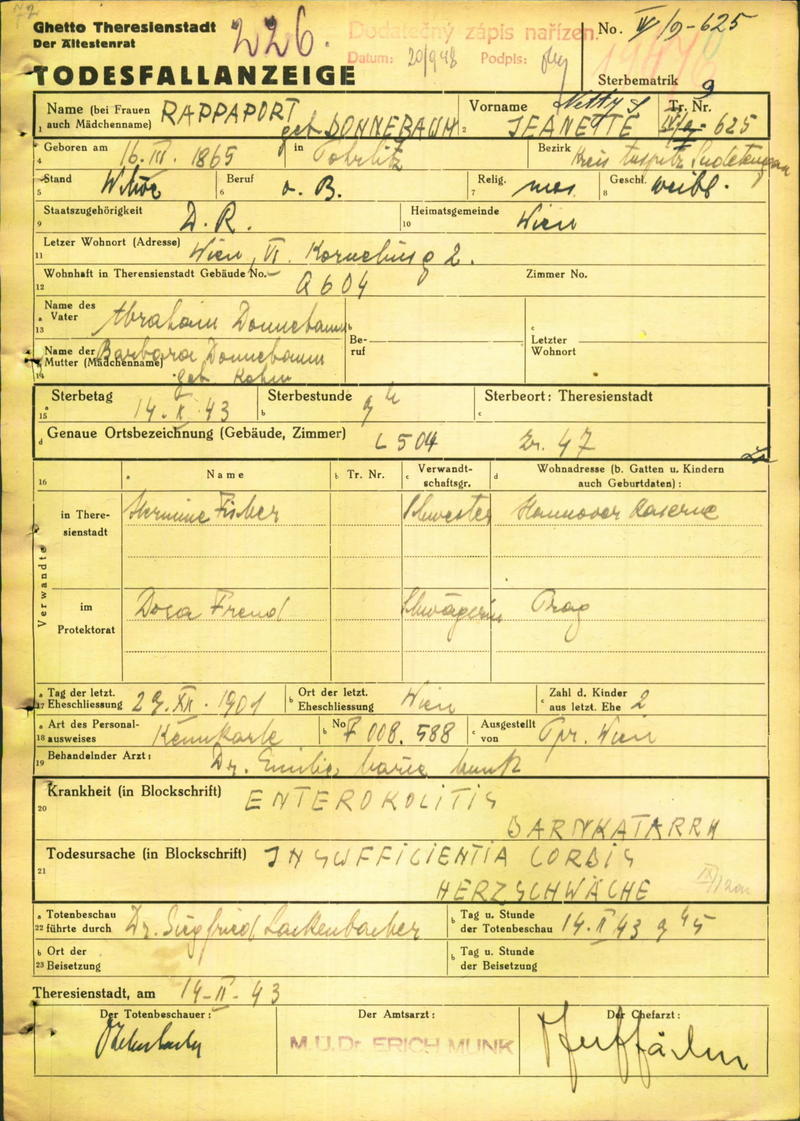 Ghetto Theresienstadt
Der Ältestenrat
226.
Dodatečný zápis nařízen.
Datum: 20/9 48 Podpis:
No. IV/9-625
TODESFALLANZEIGE
Sterbematrik 9
Name (bei Frauen auch Mädchenname) RAPPAPORT
geb DONNEBAUM
1
Vorname Netty S
JEANETTE
2
Tr. Nr.
IV/9-625
Geboren am 16. III. 1865 in Bezirk
4
Stand Witwe Beruf o. B. Relig. mos Geschl. weibl.
5 6 7 8
Staatszugehörigkeit D. R. Heimatsgemeinde Wien
9 10
Letzer Wohnort (Adresse) Wien, VI. Korneliusg 2.
11
Wohnhaft in Therensienstadt Gebäude No. Q 604 Zimmer No.
12
Name des Vater Abraham Donnebaum
13
Be-
ruf
Letzter
Wohnort
Name der Mutter (Mädchenname) Barbara Donnebaum
geb. Kohn
14
Sterbetag 14. II. 43 Sterbestunde 9 h Sterbeort: Theresienstadt
15
Genaue Ortsbezeichnung (Gebäude, Zimmer) L 504 Zr. 47
16 Name Tr. Nr. Verwandt-
schaftsgr. Wohnadresse (b. Gatten u. Kindern
auch Geburtdaten) :
Verwandte
in There-
sienstadt Hermine Fischer Schwester Hannover Kaserne
im
Protektorat Dora Freud Schwägerin Prag
Tag der letzt.
17 Eheschliessung 29. XII. 1901 Ort der letzt.
Eheschliessung Wien Zahl d. Kinder
aus letzt. Ehe 2
Art des Personal-
18 ausweises Kennkarte No 7 008. 588 Ausgestellt
von Wien
19 Behandelnder Arzt: Dr.
Krankheit (in Blockschrift) ENTEROKOLITIS
20
DARMKATARRH
Todesursache (in Blockschrift) INSUFFICIENTIA CORDIS
21
HERZSCHWÄCHE
Totenbeschau
22 führte durch Dr. Siegfried Lackenbacher Tag u. Stunde
der Totenbeschau 14. II 43 9 45
Ort der
23 Beisetzung Tag u. Stunde
der Beisetzung
Theresienstadt, am 14-II-43
Der Totenbeschauer: Der Amtsarzt: Der Chefarzt:
M.U.Dr. ERICH MUNK